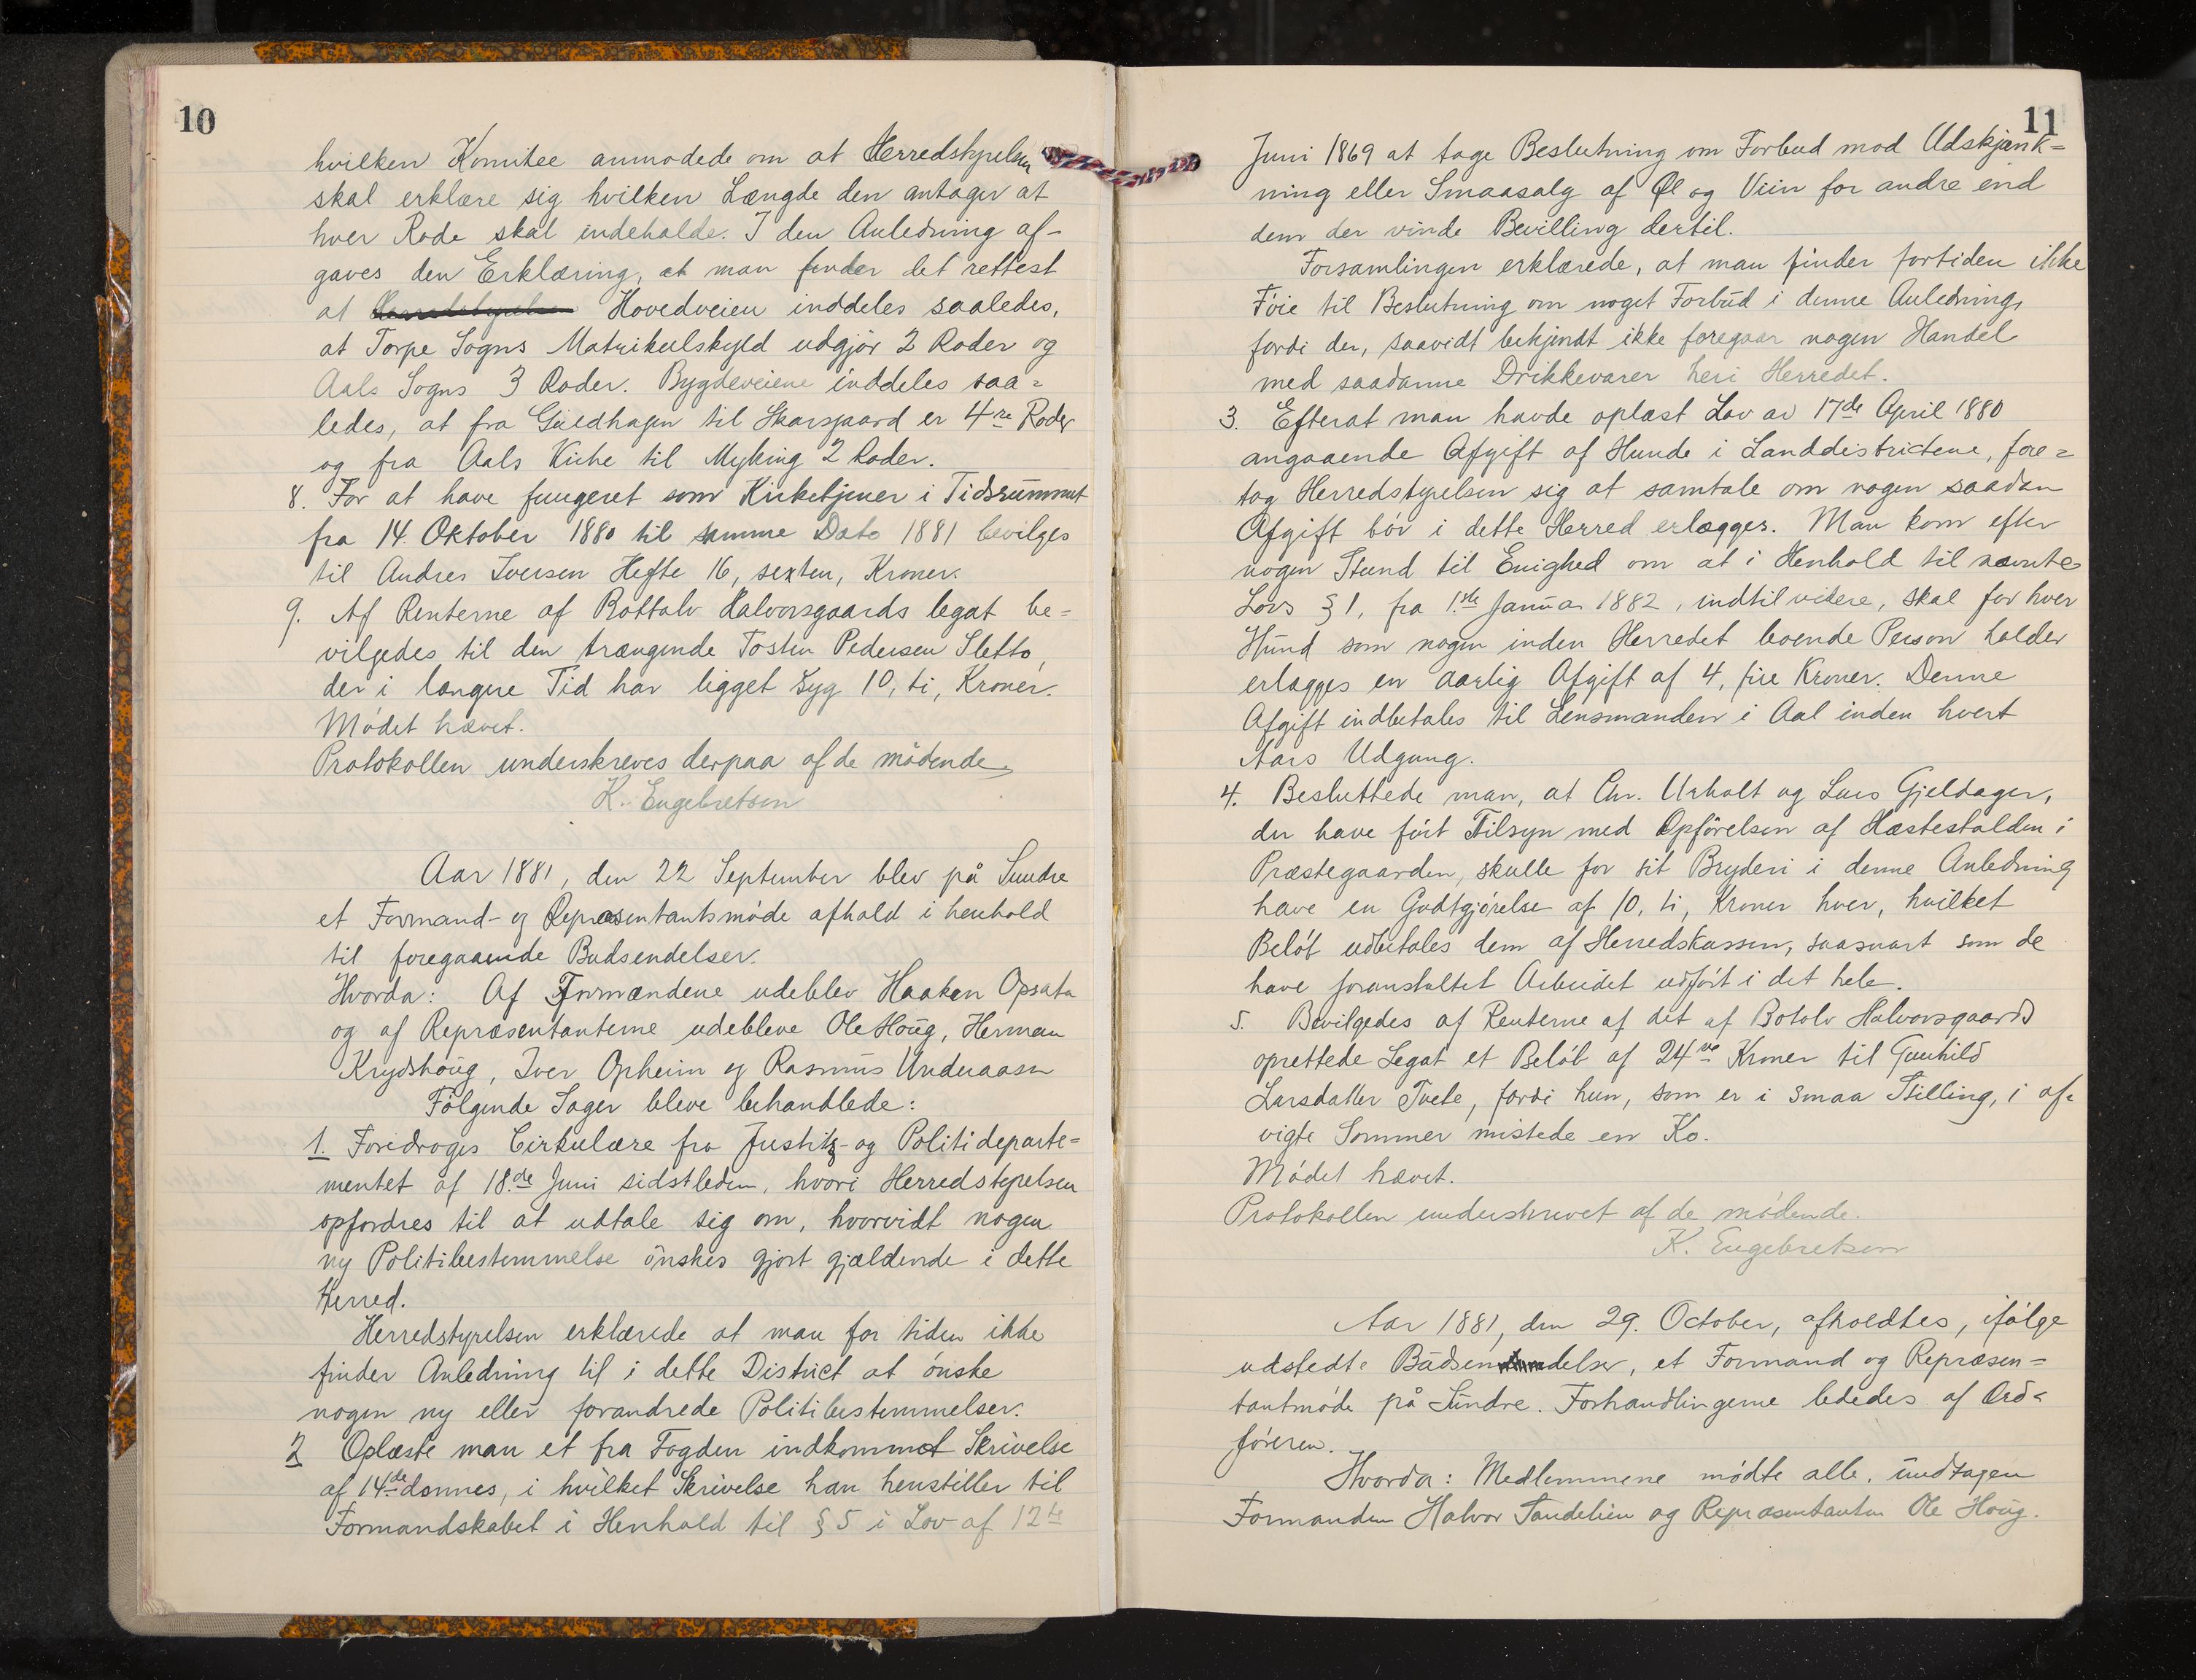 10
hvilken Komitee anmodede om at Herredstyrelsen
skal erklære sig hvilken Længde den antager at
hver Rode skal indeholde. I den Anledning af-
gaves den Erklæring, at man finder det rettest
at Herredstyrelsen Hovedveien inddeles saaledes,
at Torpe Sogns Matrikulskyld udgjør 2 Roder og
Aals Sogns 3 Roder. Bygdeveiene inddeles saa=
ledes, at fra Guldhagen til Skarsgaard er 4re Roder
og fra Aals Kirke til Myking 2 Roder.
8. For at have fungeret som Kirketjener i Tidsrummet
fra 14. Oktober 1880 til samme Dato 1881 bevilges
til Andres Iversen Hefte 16, sexten, Kroner.
9. Af Renterne af Bottolv Halvorsgaards legat be=
vilgedes til den trængende Tosten Pedersen Sletto,
der i længere Tid har ligget syg 10, ti, Kroner.
Mødet hævet.
Protokollen underskreves derpaa af de mødende.
K. Engebretsen
Aar 1881, den 22 September blev på Sundre
et Formand- og Repræsentantsmøde afhold i henhold
til foregaaende Budsendelser.
Hvorda: Af Formændene udeblev Haaken Opsata
og af Repræsentanterne udebleve Ole Houg, Herman
Krydshoug, Iver Opheim og Rasmus Underaasen
Følgende Sager bleve behandlede:
1. Foredroges Cirkulære fra Justitz- og Politideparte=
mentet af 18.de Juni sidstleden, hvori Herredstyrelsen
opfordres til at udtale sig om, hvorvidt nogen
ny Politibestemmelse ønskes gjort gjældende i dette
Herred.
Herredstyrelsen erklærede at man for tiden ikke
finder Anledning til i dette District at ønske
nogen ny eller forandrede Politibestemmelser.
2 Oplæste man et fra Fogden indkommet Skrivelse
af 14de dennes, i hvilket Skrivelse han henstiller til
Formandskabet i Henhold til § 5 i Lov af 12te
11
Juni 1869 at tage Beslutning om Forbud mod Udskjænk=
ning eller Smaasalg af Øl og Viin for andre end
dem der vinde Bevilling dertil.
Forsamlingen erklærede, at man finder fortiden ikke
Føie til Beslutning om noget Forbud i denne Anledning,
fordi der, saavidt bekjendt ikke foregaar nogen Handel
med saadanne Drikkevarer heri Herredet.
3. Efterat man havde oplæst Lov av 17de April 1880
angaaende Afgift af Hunde i Landdistrictene, fore=
tog Herredstyrelsen sig at samtale om nogen saadan
Afgift bør i dette Herred erlægges. Man kom efter
nogen Stund til Enighed om at i Henhold til nævnte
Lovs § 1, fra 1ste Januar 1882, indtil videre, skal for hver
Hund som nogen inden Herredet boende Person holder
erlægges en aarlig Afgift af 4, fire Kroner. Denne
Afgift indbetales til Lensmanden i Aal inden hvert
Aars Udgang.
4. Besluttede man, at Chr. Urholt og Lars Gjeldager,
der have ført Tilsyn med Opførelsen af Hæstestalden i
Præstegaarden, skulle for sit Bryderi i denne Anledning
have en Godtgjørelse af 10, ti, Kroner hver, hvilket
Beløb udbetales dem af Herredskassen, saasnart som de
have foranstaltet Arbeidet udført i det hele.
5. Bevilgedes af Renterne af det af Botolv Halvorsgaards
oprettede Legat et Beløb af 24re Kroner til Gunhild
Larsdatter Tvete, fordi hun, som er i smaa Stilling, i af=
vigte Sommer mistede en Ko.
Mødet hævet.
Protokollen underskrevet af de mødende.
K. Engebretsen
Aar 1881, den 29. October, afholdtes, ifølge
udstedte Budsendelser, et Formand og Repræsen=
tantmøde på Sundre. Forhandlingerne lededes af Ord=
føreren.
Hvorda: Medlemmene mødte alle, undtagen
Formanden Halvor Sandelien og Repræsentanten Ole Houg.